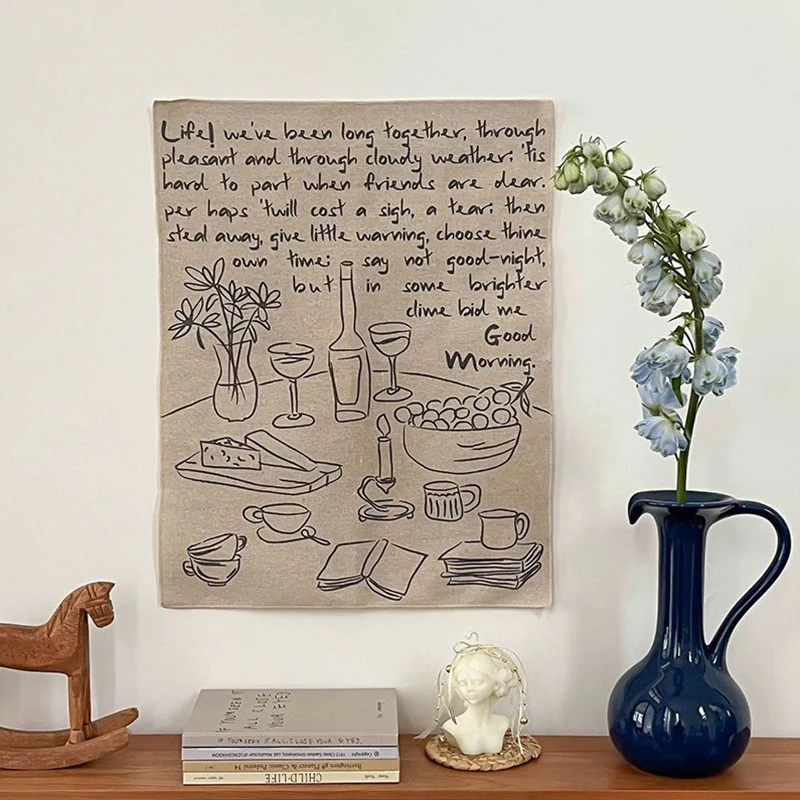 Life! we've been long together, through
pleasant and through cloudy weather; 'tis
hard to part when friends are dear.
per haps 'twill cost a sigh, a tear; then
steal away, give little warning, choose thine
own time; say not good-night,
but in some brighter
clime bid me
Good
Morning.
CHILD-LIFE
New York